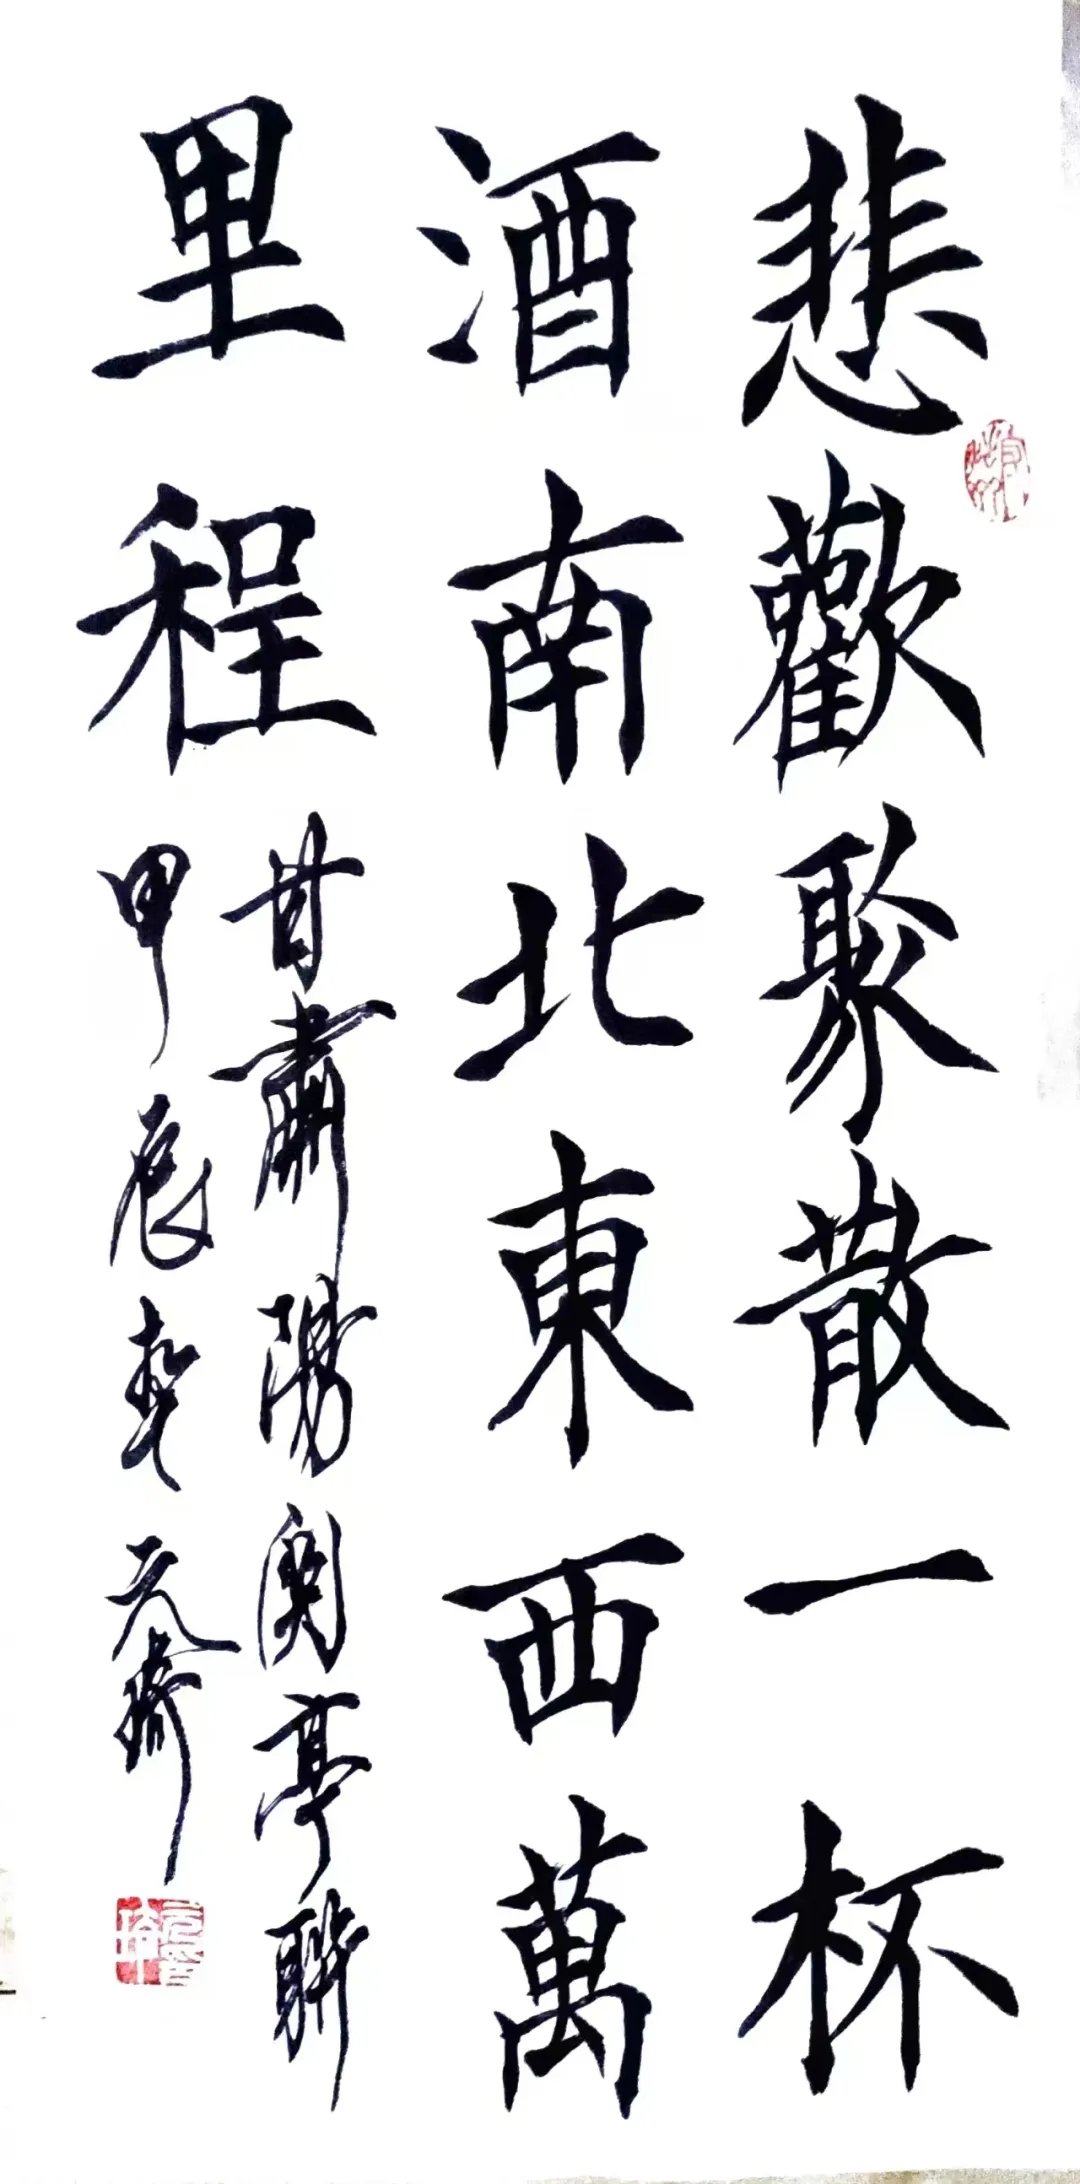 悲歡聚散一杯
酒南北東西萬
里程
甘肅陽関亭聯
甲辰春元齋